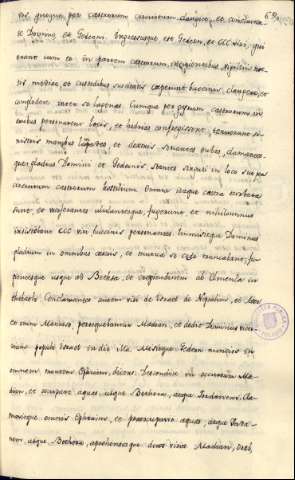 vos quoque per castrorum circuitum clangite, et conclamate
Domino et Gedeoni. Ingressusque est Gedeon, et CCC viri, qui
erant cum eo in partem castrorum, incipientibus vigiliis noc-
tis mediæ, et custodibus suscitatis cœperunt buccinis clangere, et
complodere inter se lagenas. Cumque per gyrum castrorum in
tribus personarent locis, et hydrias confregissent, tenuerunt si-
nistris manibus lampades, et dextris sonantes tubas, clamaverunt-
que: gladius Domini et Gedeonis, stantes singuli in loco suo per
circuitum castrorum hostilium. Omnia itaque castra turbata
sunt, et vociferantes ululantesque, fugerunt, et nihilominus
insistebant CCC viri buccinis personantes. Immisitque Dominus
gladium in omnibus castris, et mutua se cæde truncabant, fu-
gientesque usque ad Bethsetta, et crepidinem ab Elmehula in
Thebbath. Conclamantes autem viri de Israel de Nephthali, et Aser,
et omni Manasse, persequebantur Madian, et dedit Dominus victo-
riam populo Israel in die illa. Misitque Gedeon nuntios in
omnem montem Ephraim, dicens: Descendite in occursum Ma-
dian, et occupate aquas usque Bethbera, atque Jordanem. Cla-
mavitque omnis Ephraim, et præoccupavit aquas, atque Jorda-
nem, usque Bethbera, apprehensosque duos viros Madian, Oreb,